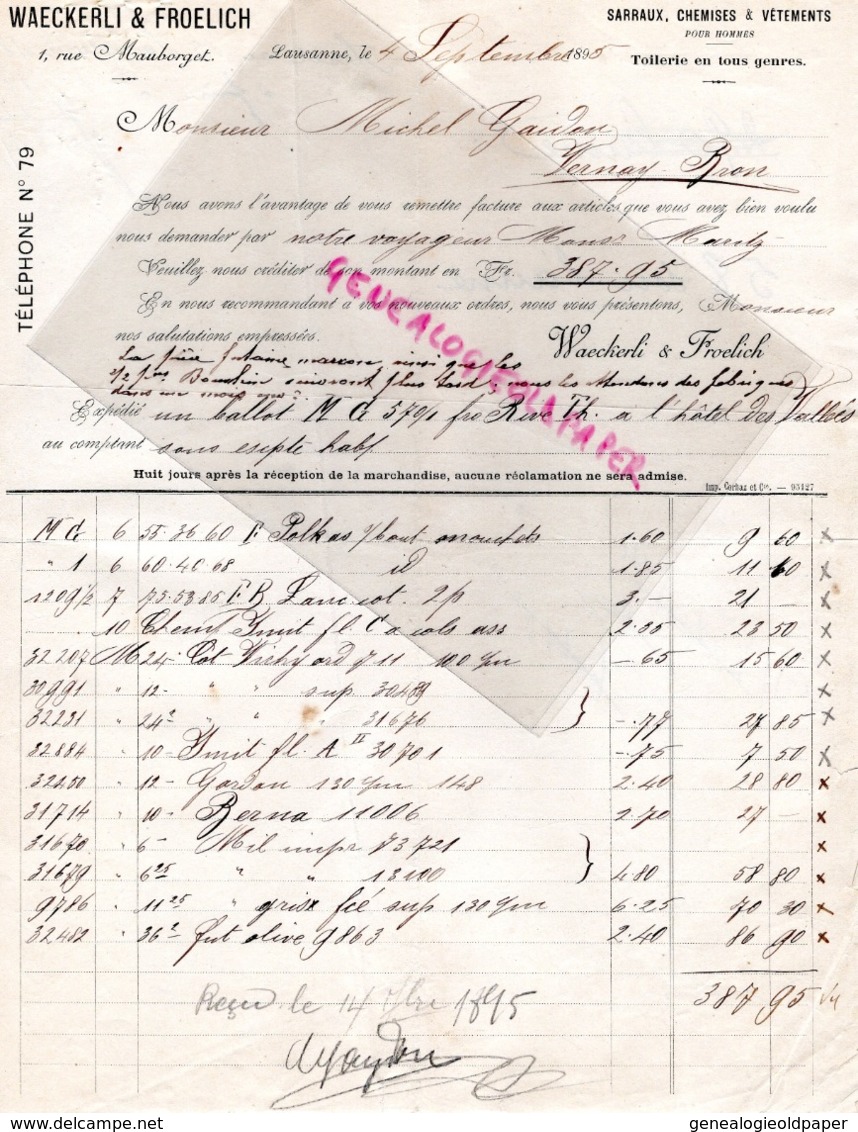 WAECKERLI & FROELICH
1, rue Mauborget.
SARRAUX, CHEMISES & VÊTEMENTS
POUR HOMMES
Toilerie en tous genres.
Lausanne, le 4 Septembre 1895
TÉLÉPHONE N° 79
Monsieur Michel Gaidon
Vernay Bron
Nous avons l'avantage de vous remettre facture aux articles que vous avez bien voulu
nous demander par notre voyageur Monsr Maritz
Veuillez nous créditer de son montant en Fr. 387.95
En nous recommandant à vos nouveaux ordres, nous vous présentons, Monsieur
nos salutations empressées.
Waeckerli & Froelich
La pièce futaine marron, ainsi que les
suivront plus tard; nous les des fabriques
dans un mois
Expédié un ballot M G 5701 fro Rive Th. a l'hôtel des
au comptant sous escpte habl
Huit jours après la réception de la marchandise, aucune réclamation ne sera admise.
Imp. Corbaz et Cie. — 93127
MG 6 55.36 60 F Polkas 1.60 9 60 x
" 1 6 60.40 68 id 1.85 11 10 x
1209 1/2 7 75.58 85 F.B. 2p 3.- 21 - x
10 Chem Imit fl. C a cols ass 2.35 23 50 x
32207 M 24- Cot Vichy ord 711 100 cm -.65 15 60 x
30991 " 12- " " sup 30489 x
32231 " 24² " " 31676 -.77 27 85 x
32884 " 10- Imit fl. A II 30701 -.75 7 50 x
32450 " 12- Gordon 130 cm 148 2.40 28 80 x
31714 " 10- Berna 11006 2.70 27 - x
31670 " 6- Mil impr 73721 x
31679 " 6 25 " " 13100 4.80 58 80 x
9786 " 11 25 " gris fcé sup 130 cm 6.25 70 30 x
32482 " 36² fut olive 9863 2.40 86 90 x
387 95
Reçu le 14 7bre 1895
GENEALOGIEOLDPAPER
www.delcampe.net
genealogieoldpaper